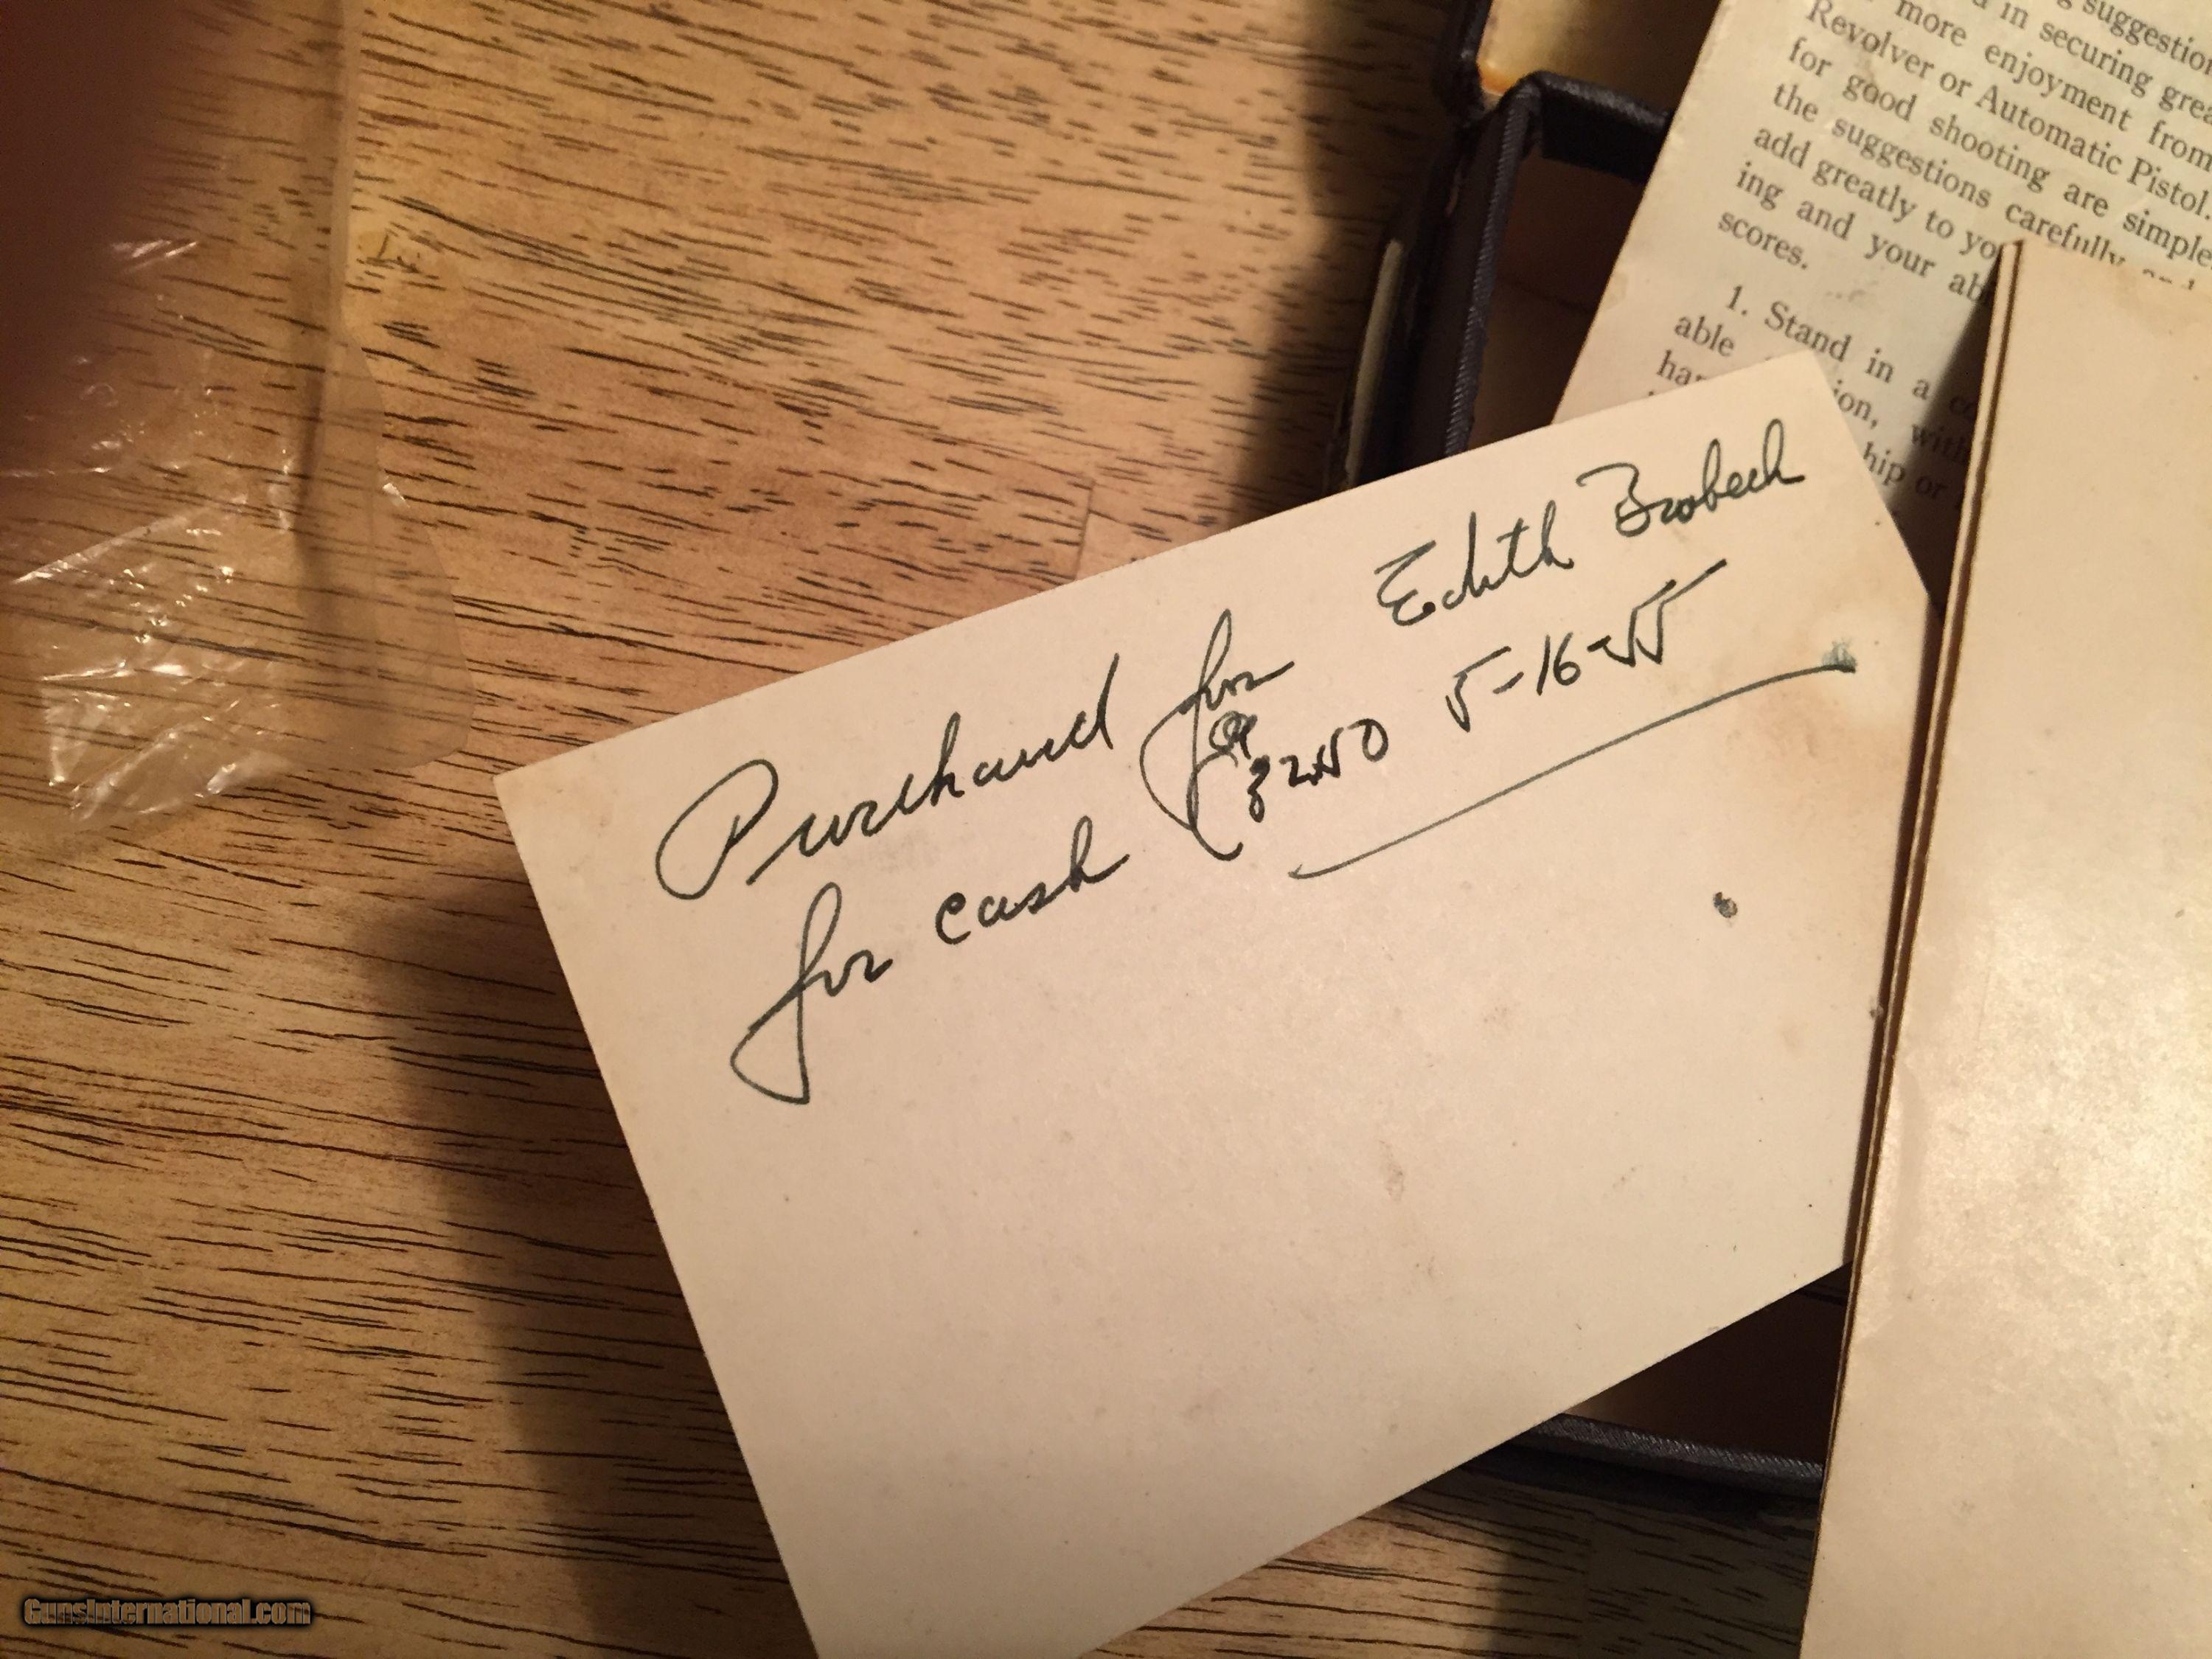 suggestion
in securing grea
more enjoyment from
Revolver or Automatic Pistol.
for good shooting are simple
the suggestions carefully and
add greatly to yo
ing and your ab
scores.
1. Stand in a co
able
ion, with
hip or
Purchased for Edith Brobeck
for cash @ 32.50 5-16-55
GunsInternational.com